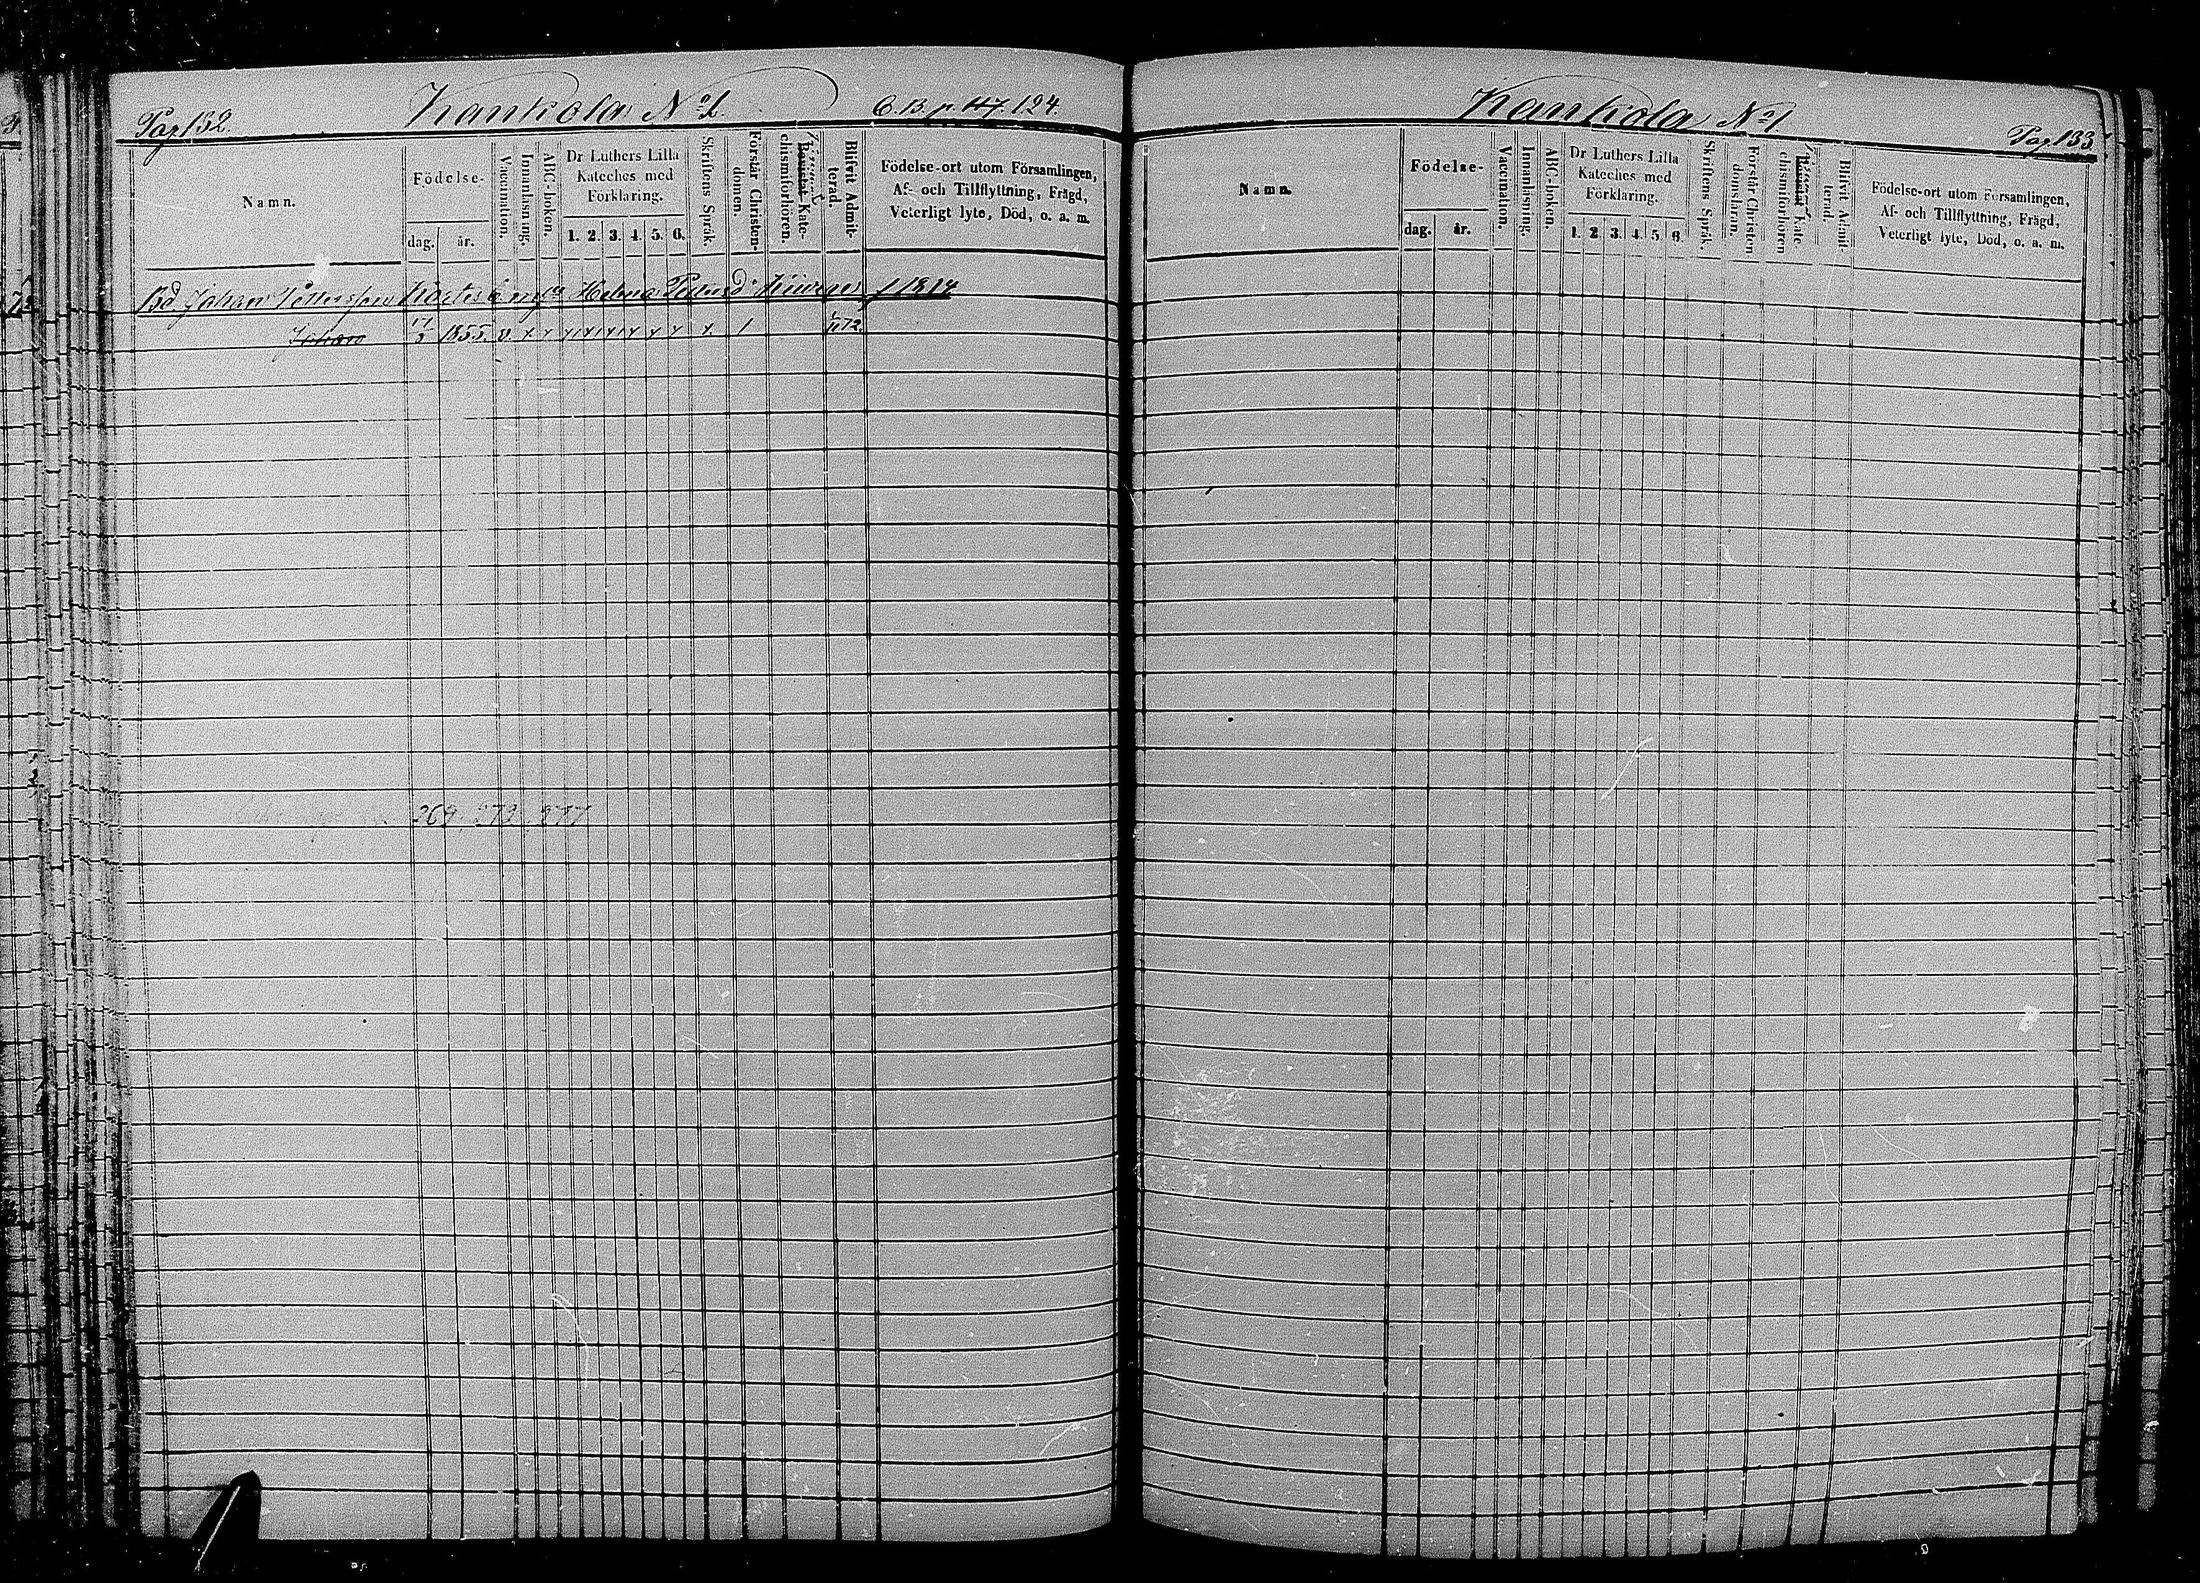 Pag 132. Kankola № 1. C. B. p. 117. 124.
Namn. Födelse- dag. år. Vaccination. Innanläsning. ABC-boken. Dr Luthers Lilla Kateches med Förklaring. 1. 2. 3. 4. 5. 6. Skriftens Språk. Förstår Christendomen. Bevistat Katechismiförhören. Blifvit Admitterad. Födelse-ort utom Församlingen, Af- och Tillflyttning, Frägd, Veterligt lyte, Död, o. a. m.
Bd. Johan Pettersson Helena Kiiveres f 1814
Johan 1855. v. x x x x x x x x x. 1 72
269, 273, 277
Kankola № 1 Pag 133
Namn. Födelse- dag. år. Vaccination. Innanläsning. ABC-boken. Dr Luthers Lilla Kateches med Förklaring. 1. 2. 3. 4. 5. 6. Skriftens Språk. Förstår Christendomsläran. Bevistat Katechismiförhören Blifvit Admitterad. Födelse-ort utom Församlingen, Af- och Tillflyttning, Frägd, Veterligt lyte, Död, o. a. m.